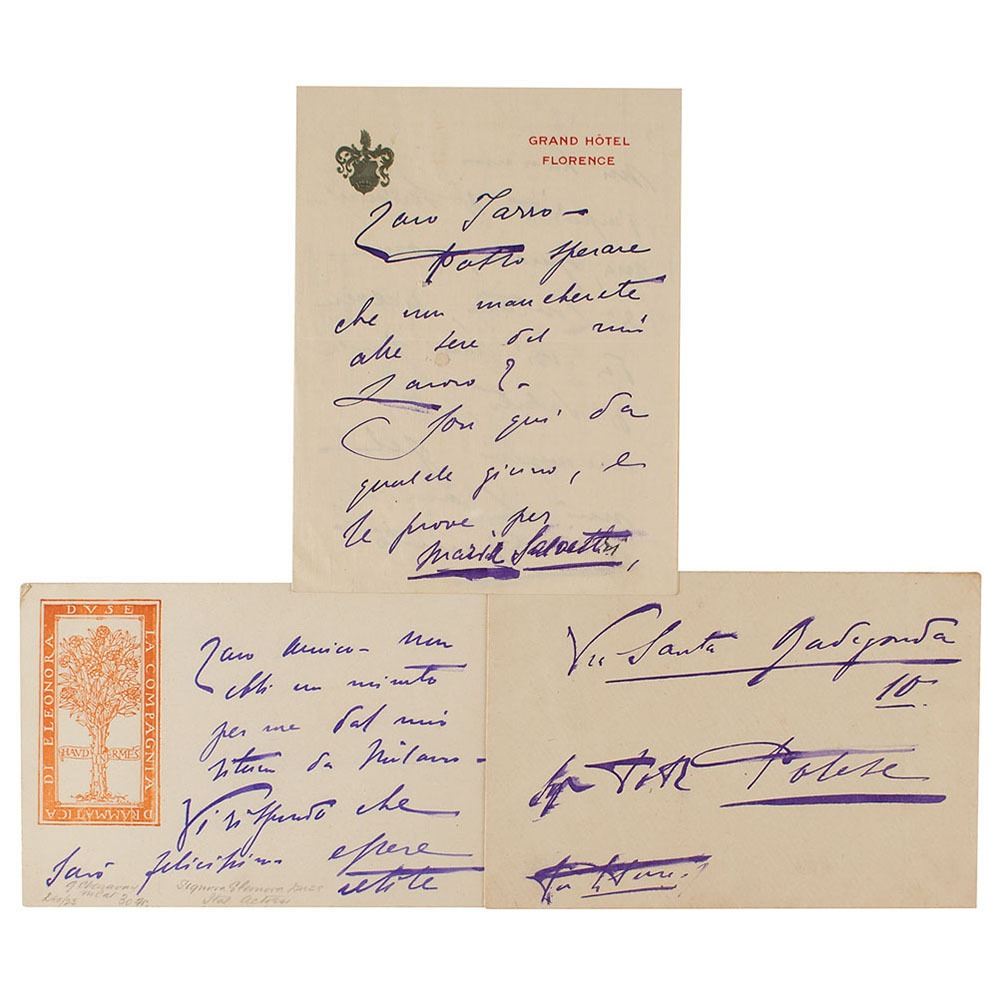 GRAND HÔTEL
FLORENCE
Caro Jarro –
Posso sperare
che non mancherete
alle sere del mio
Lavoro ? –
Son qui da
qualche giorno, e
le prove per
Maria Salvestri,
DI ELEONORA DVSE LA COMPAGNIA DRAMMATICA
HAVD INERMES
Caro Amico – non
ebbi un minuto
per me dal mio
ritorno da Milano –
Vi rispondo che
Sarò felicissima essere
Signora Eleonora Duse
Ital Actress
30 Fr.
Via Santa Radegonda
10
Sigr Dott. Polese